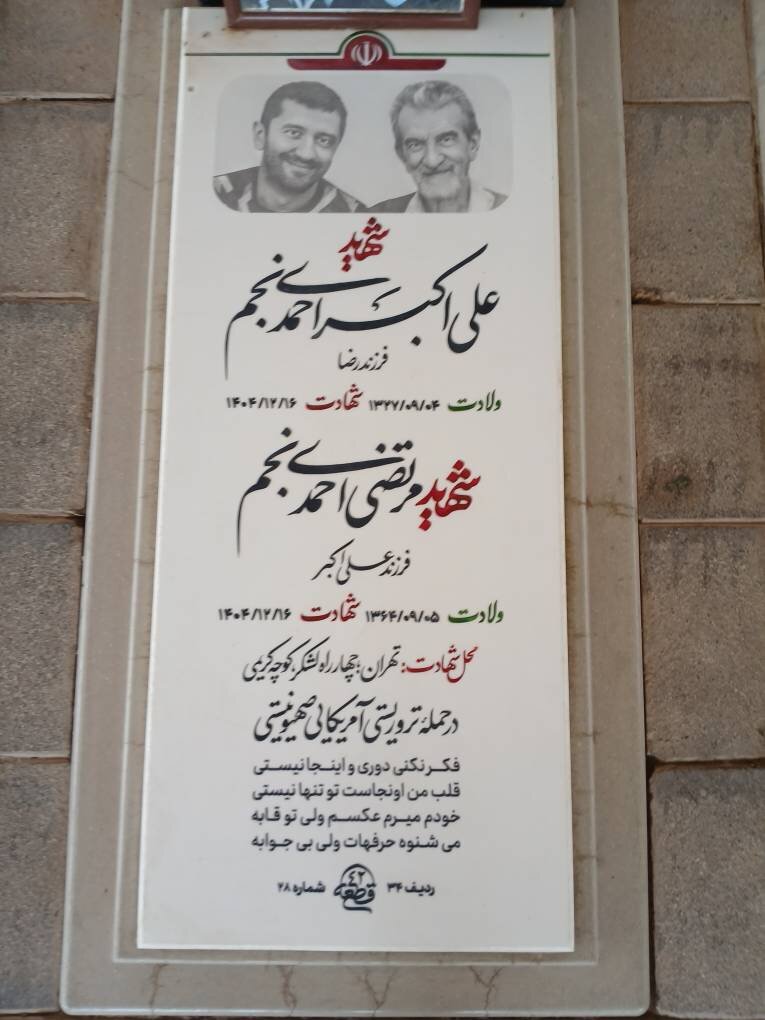 شهید
علی اکبر احمدی نجم
فرزند رضا
ولادت ۱۳۲۷/۰۹/۰۴ شهادت ۱۴۰۴/۱۲/۱۶
شهید مرتضی احمدی نجم
فرزند علی اکبر
ولادت ۱۳۶۴/۰۹/۰۵ شهادت ۱۴۰۴/۱۲/۱۶
محل شهادت: تهران؛ چهارراه لشکر، کوچه کریمی
در حملهٔ تروریستی آمریکایی صهیونیستی
فکر نکنی دوری و اینجا نیستی
قلب من اونجاست تو تنها نیستی
خودم میرم عکسم ولی تو قابه
می شنوه حرفهات ولی بی جوابه
ردیف ۳۴ قطعه ۴۲ شماره ۲۸